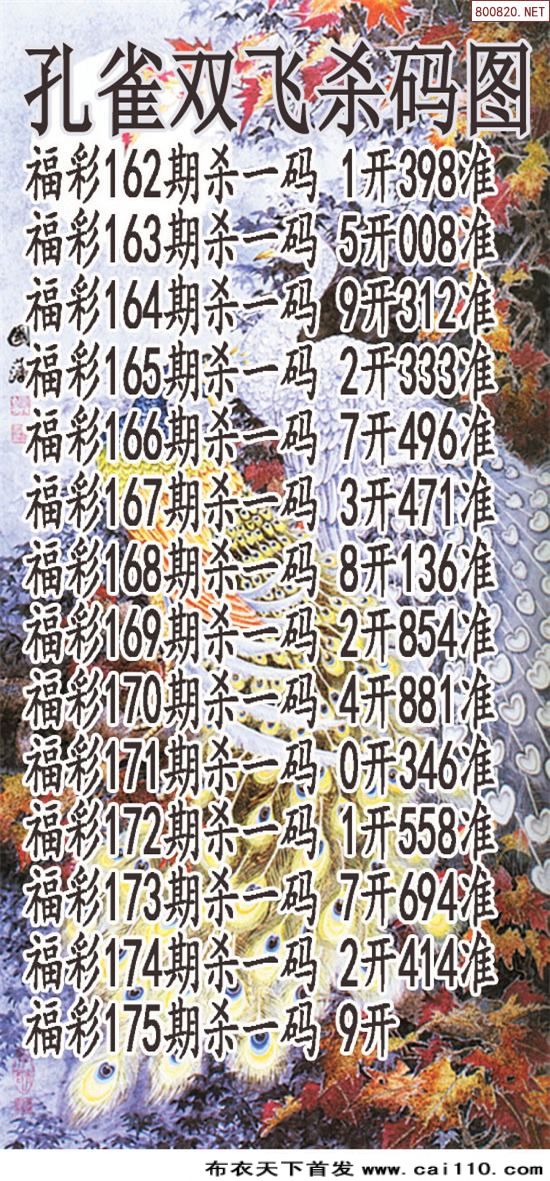 800820.NET
孔雀双飞杀码图
福彩162期杀一码 1开398准
福彩163期杀一码 5开008准
福彩164期杀一码 9开312准
福彩165期杀一码 2开333准
福彩166期杀一码 7开496准
福彩167期杀一码 3开471准
福彩168期杀一码 8开136准
福彩169期杀一码 2开854准
福彩170期杀一码 4开881准
福彩171期杀一码 0开346准
福彩172期杀一码 1开558准
福彩173期杀一码 7开694准
福彩174期杀一码 2开414准
福彩175期杀一码 9开
布衣天下首发 www.cai110.com